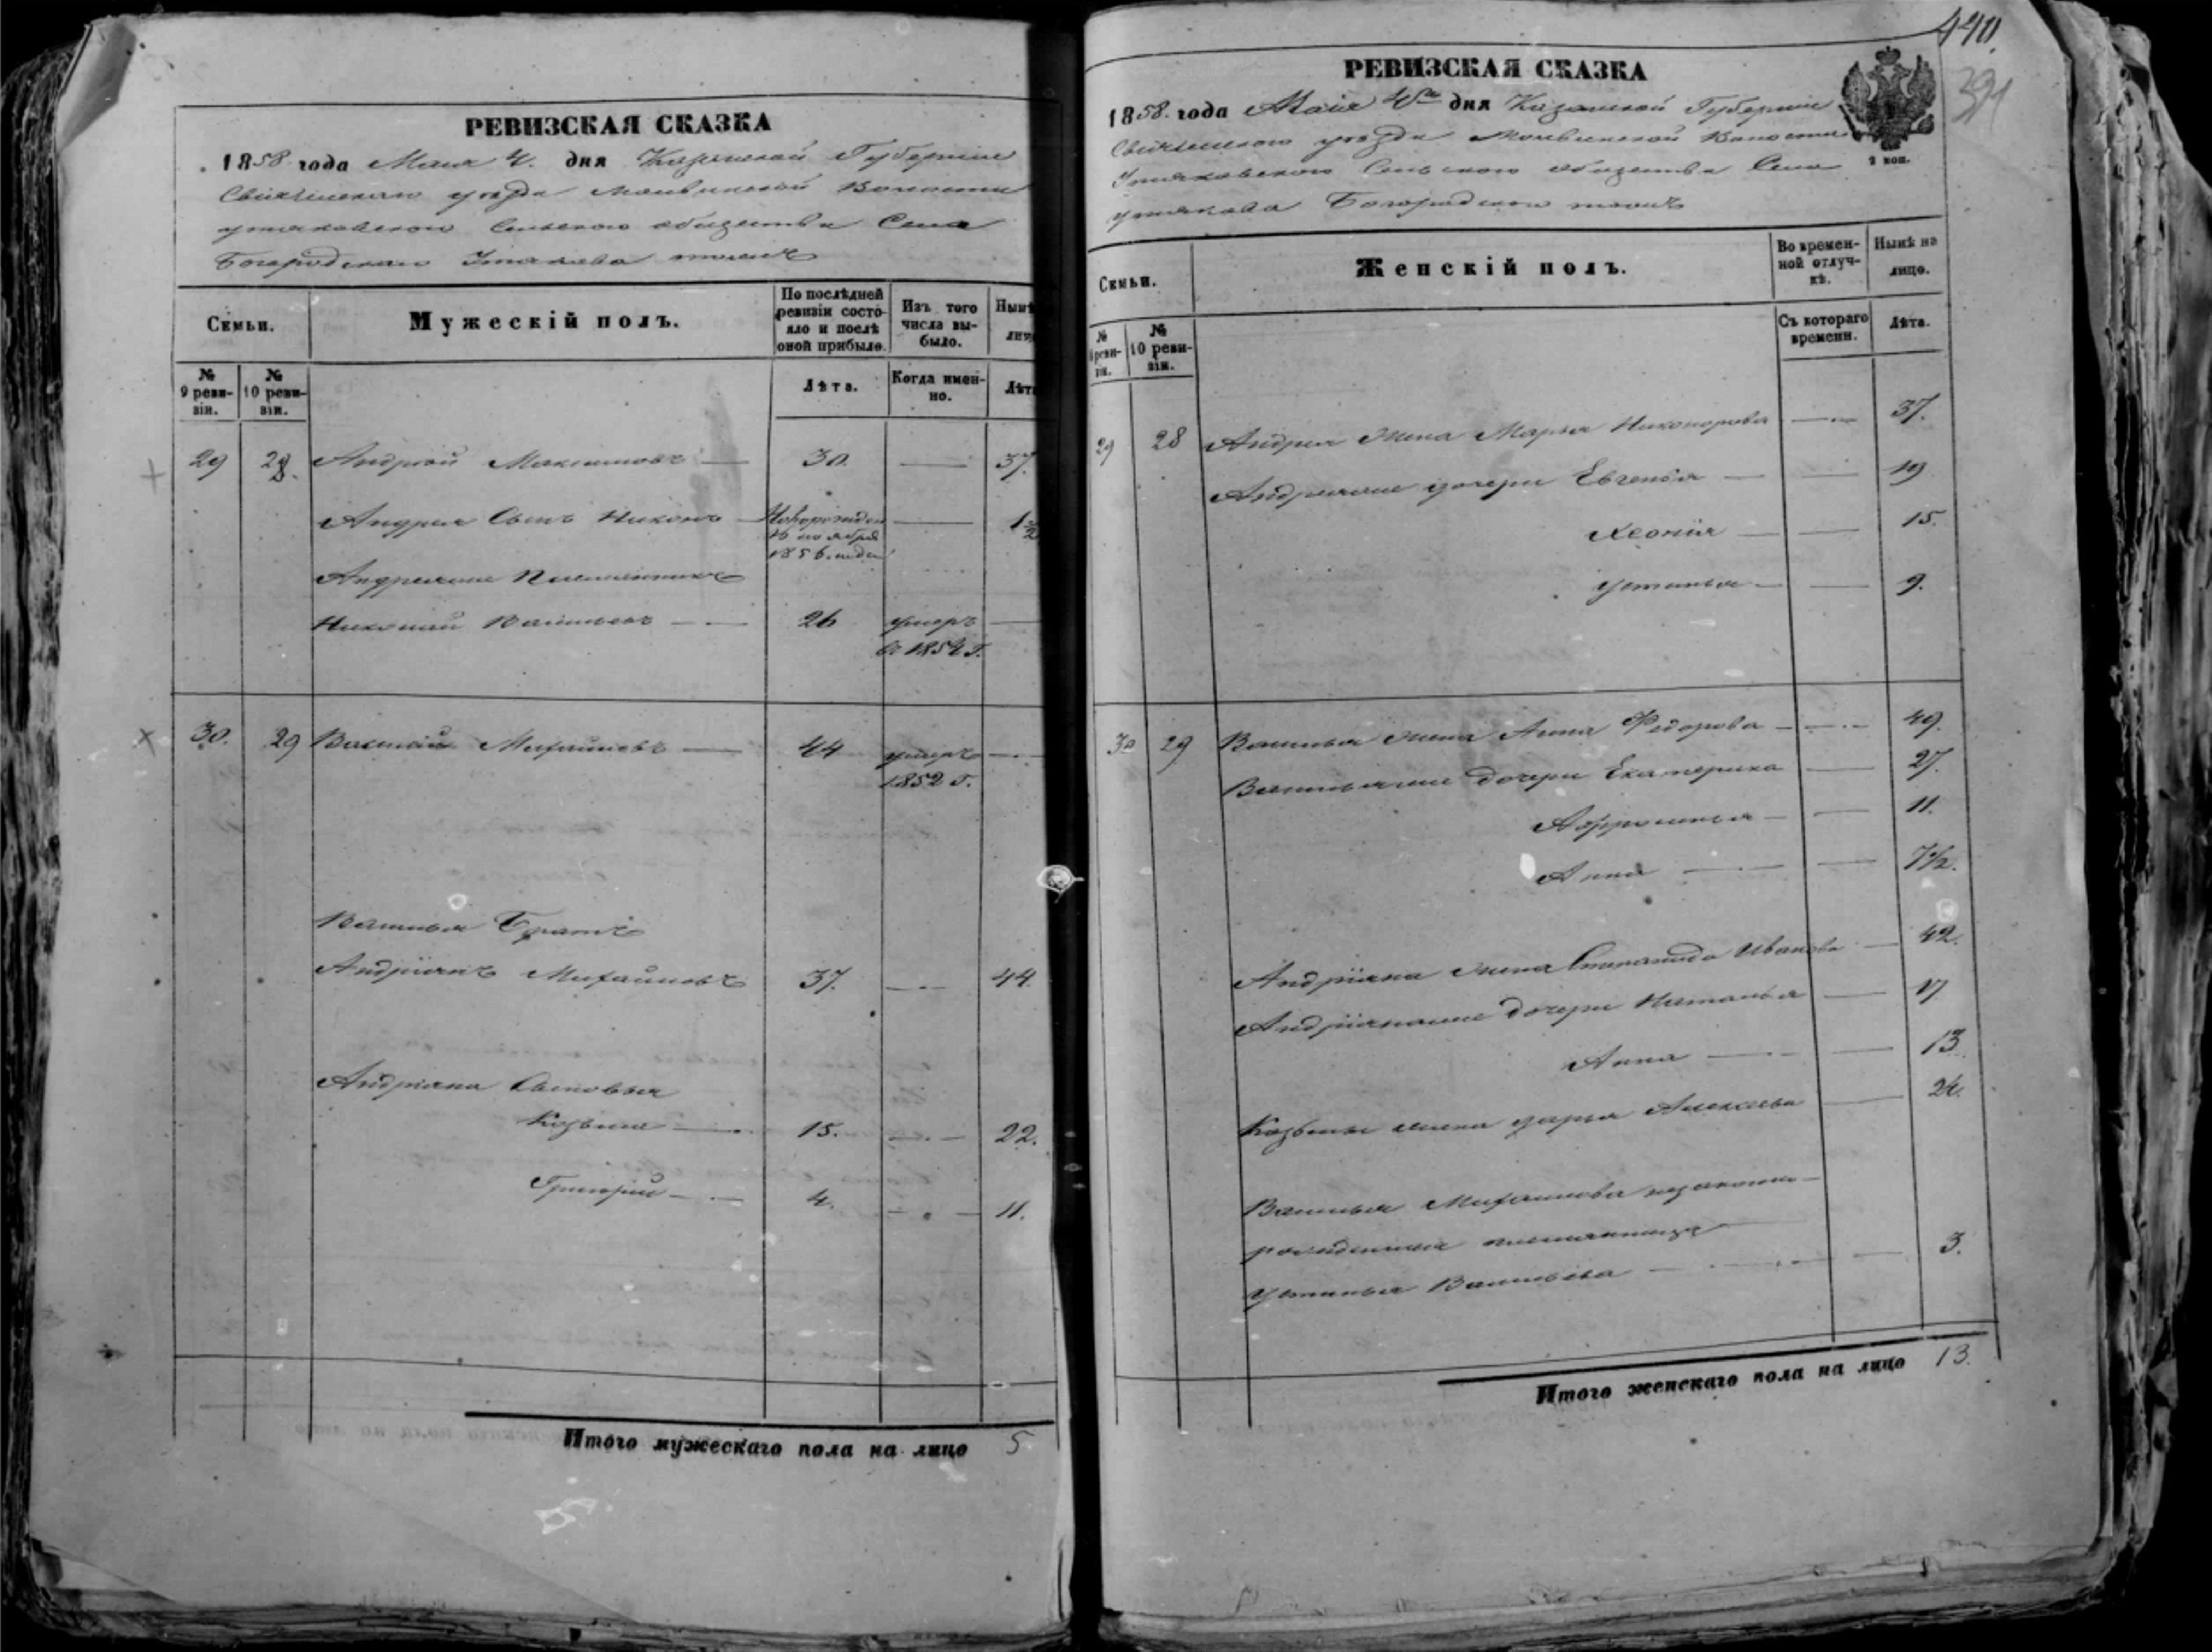 РЕВИЗСКАЯ СКАЗКА
1858 года Маия 4. дня Казанской Губернiи
Свiяжскаго уѣзда Волости
Сельского общества Села
Богородскаго тожъ
Семьи.
Мужескій полъ.
По послѣдней ревизіи состояло и послѣ оной прибыло.
Изъ того числа выбыло.
Нынѣ
лиц
№ 9 ревизіи.
№ 10 ревизіи.
Лѣта.
Когда именно.
Лѣт
29 28. Андрей Максимовъ — 30. — 37.
Андрея Сынъ Никонъ — Новорожден — 1½
ноября
1856 года
Андреяна Племянникъ
Николай Васильевъ — 26 умеръ —
въ 1852 г.
30. 29 Василий Михайловъ — 44 умеръ —
1852 г.
Василья Братъ
Андрiянъ Михайловъ 37. — 44.
Андрiяна Сыновья
Козьма — 15. — 22.
Григорiй — 4. — 11.
Итого мужескаго пола на лицо 5
440.
391
РЕВИЗСКАЯ СКАЗКА
1858. года Маiя 4го дня Казанской Губернiи
Свiяжскаго уѣзда Волости
Сельского общества Села
Богородское тожъ
2 коп.
Семьи.
Женскій полъ.
Во временной отлучкѣ.
Нынѣ на лицо.
№ 9 ревизіи.
№ 10 ревизіи.
Съ котораго времени.
Лѣта.
29 28 Андрея жена Марья Никонорова — 37.
дочери Евгенья — 19
Хеонiя — 15.
Устинья — 9.
30 29 Василья жена Анна Федорова — 49.
дочери Екатерина — 27.
Афросинья — 11.
Анна — 7½.
Андрiяна жена Степанида Иванова — 42.
дочери Наталья — 17
Анна — 13
Козьмы жена Дарья Алексѣева — 24.
Василья Михайлова незаконно-
рожденная племянница
Устинья Васильева — 3.
Итого женскаго пола на лицо 13.